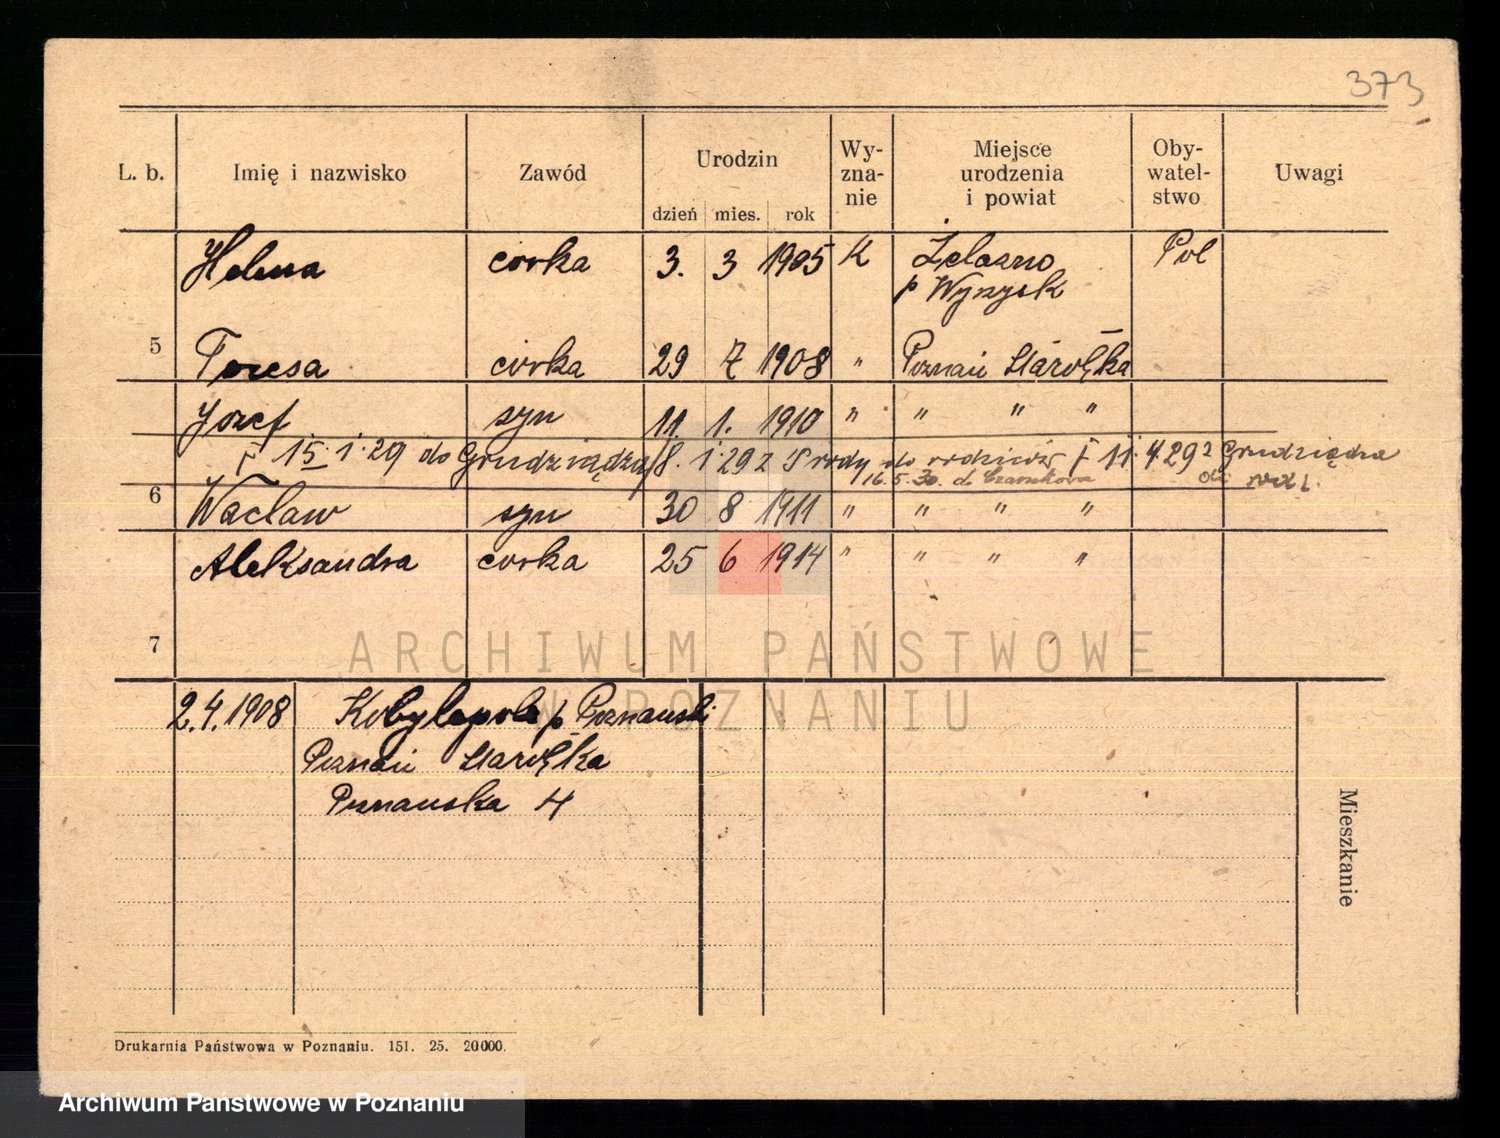 373
L. b. Imię i nazwisko Zawód Urodzin dzień mies. rok Wy-zna-nie Miejsce urodzenia i powiat Oby-watel-stwo Uwagi
Helena córka 3. 3 1905 K Żelazno Pol
p Wyrzysk
5 Teresa córka 29 7 1908 " Poznań Starołęka
Józef syn 11. 1. 1910 " " " "
15. 1. 29 do Grudziądza 8. 1. 29 z Środy do rodziców 11. 4. 29 z Grudziądza
16. 5. 30. d. Czarnkowa do rodz.
6 Wacław syn 30 8 1911 " " " "
Aleksandra córka 25 6 1914 " " " "
7
ARCHIWUM PAŃSTWOWE
W POZNANIU
2.4.1908 Kobylepole p Poznański
Poznań Starołęka
Poznańska 4
Mieszkanie
Drukarnia Państwowa w Poznaniu. 151. 25. 20000.
Archiwum Państwowe w Poznaniu